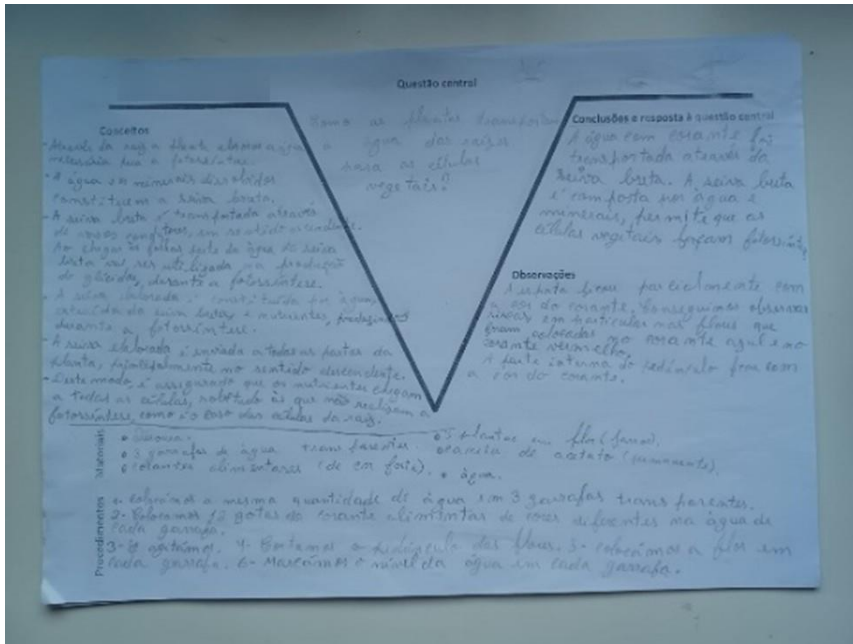 Questão central
Como as plantas transportam
a água das raízes
para as células
vegetais?
Conceitos
- Através da raiz a planta absorve a água
necessária para a fotossíntese.
- A água e os minerais dissolvidos
constituem a seiva bruta.
- A seiva bruta é transportada através
de vasos condutores, em sentido ascendente.
Ao chegar às folhas parte da água da seiva
bruta vai ser utilizada na produção
de glícidos, durante a fotossíntese.
- A seiva elaborada é constituída por água,
da seiva bruta e nutrientes, produzidos
durante a fotossíntese.
- A seiva elaborada é enviada a todas as partes da
planta, principalmente no sentido descendente.
- Deste modo, é assegurado que os nutrientes chegam
a todas as células, sobretudo às que não realizam a
fotossíntese, como é o caso das células da raiz.
Conclusões e resposta à questão central
A água com corante foi
transportada através da
seiva bruta. A seiva bruta
é composta por água e
minerais, permite que as
células vegetais façam fotossíntese
Observações
A ficou parcialmente com
a cor do corante. Conseguimos observar
riscas em particular nas flores que
foram colocadas no corante azul e no
corante vermelho.
A parte interna do pedúnculo ficou com
a cor do corante.
Materiais
• 3 garrafas de água transparentes.
• Corantes alimentares (de cor forte).
• 3 plantas em flor
• caneta de acetato (permanente).
• água.
Procedimentos
1- Colocámos a mesma quantidade de água em 3 garrafas transparentes.
2- Colocámos gotas do corante de cores diferentes na água de
cada garrafa.
3- 4- Cortámos o pedúnculo das flores. 5- Colocámos a flor em
cada garrafa. 6- Marcámos o nível da água em cada garrafa.